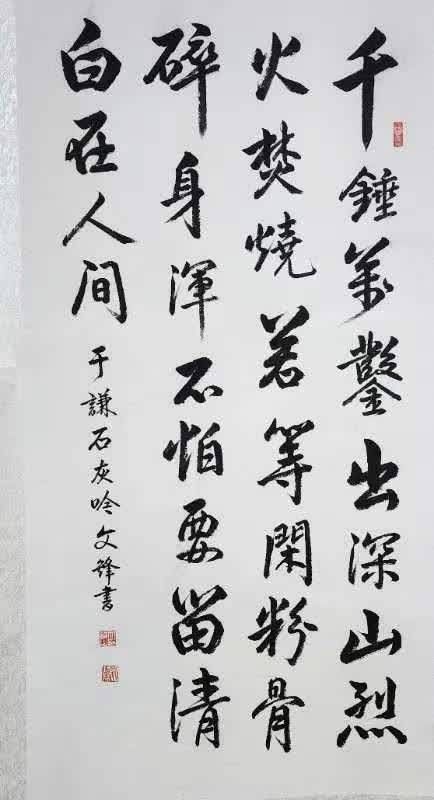 千錘萬鑿出深山烈
火焚燒若等閑粉骨
碎身渾不怕要留清
白在人间
于謙石灰吟文鋒書